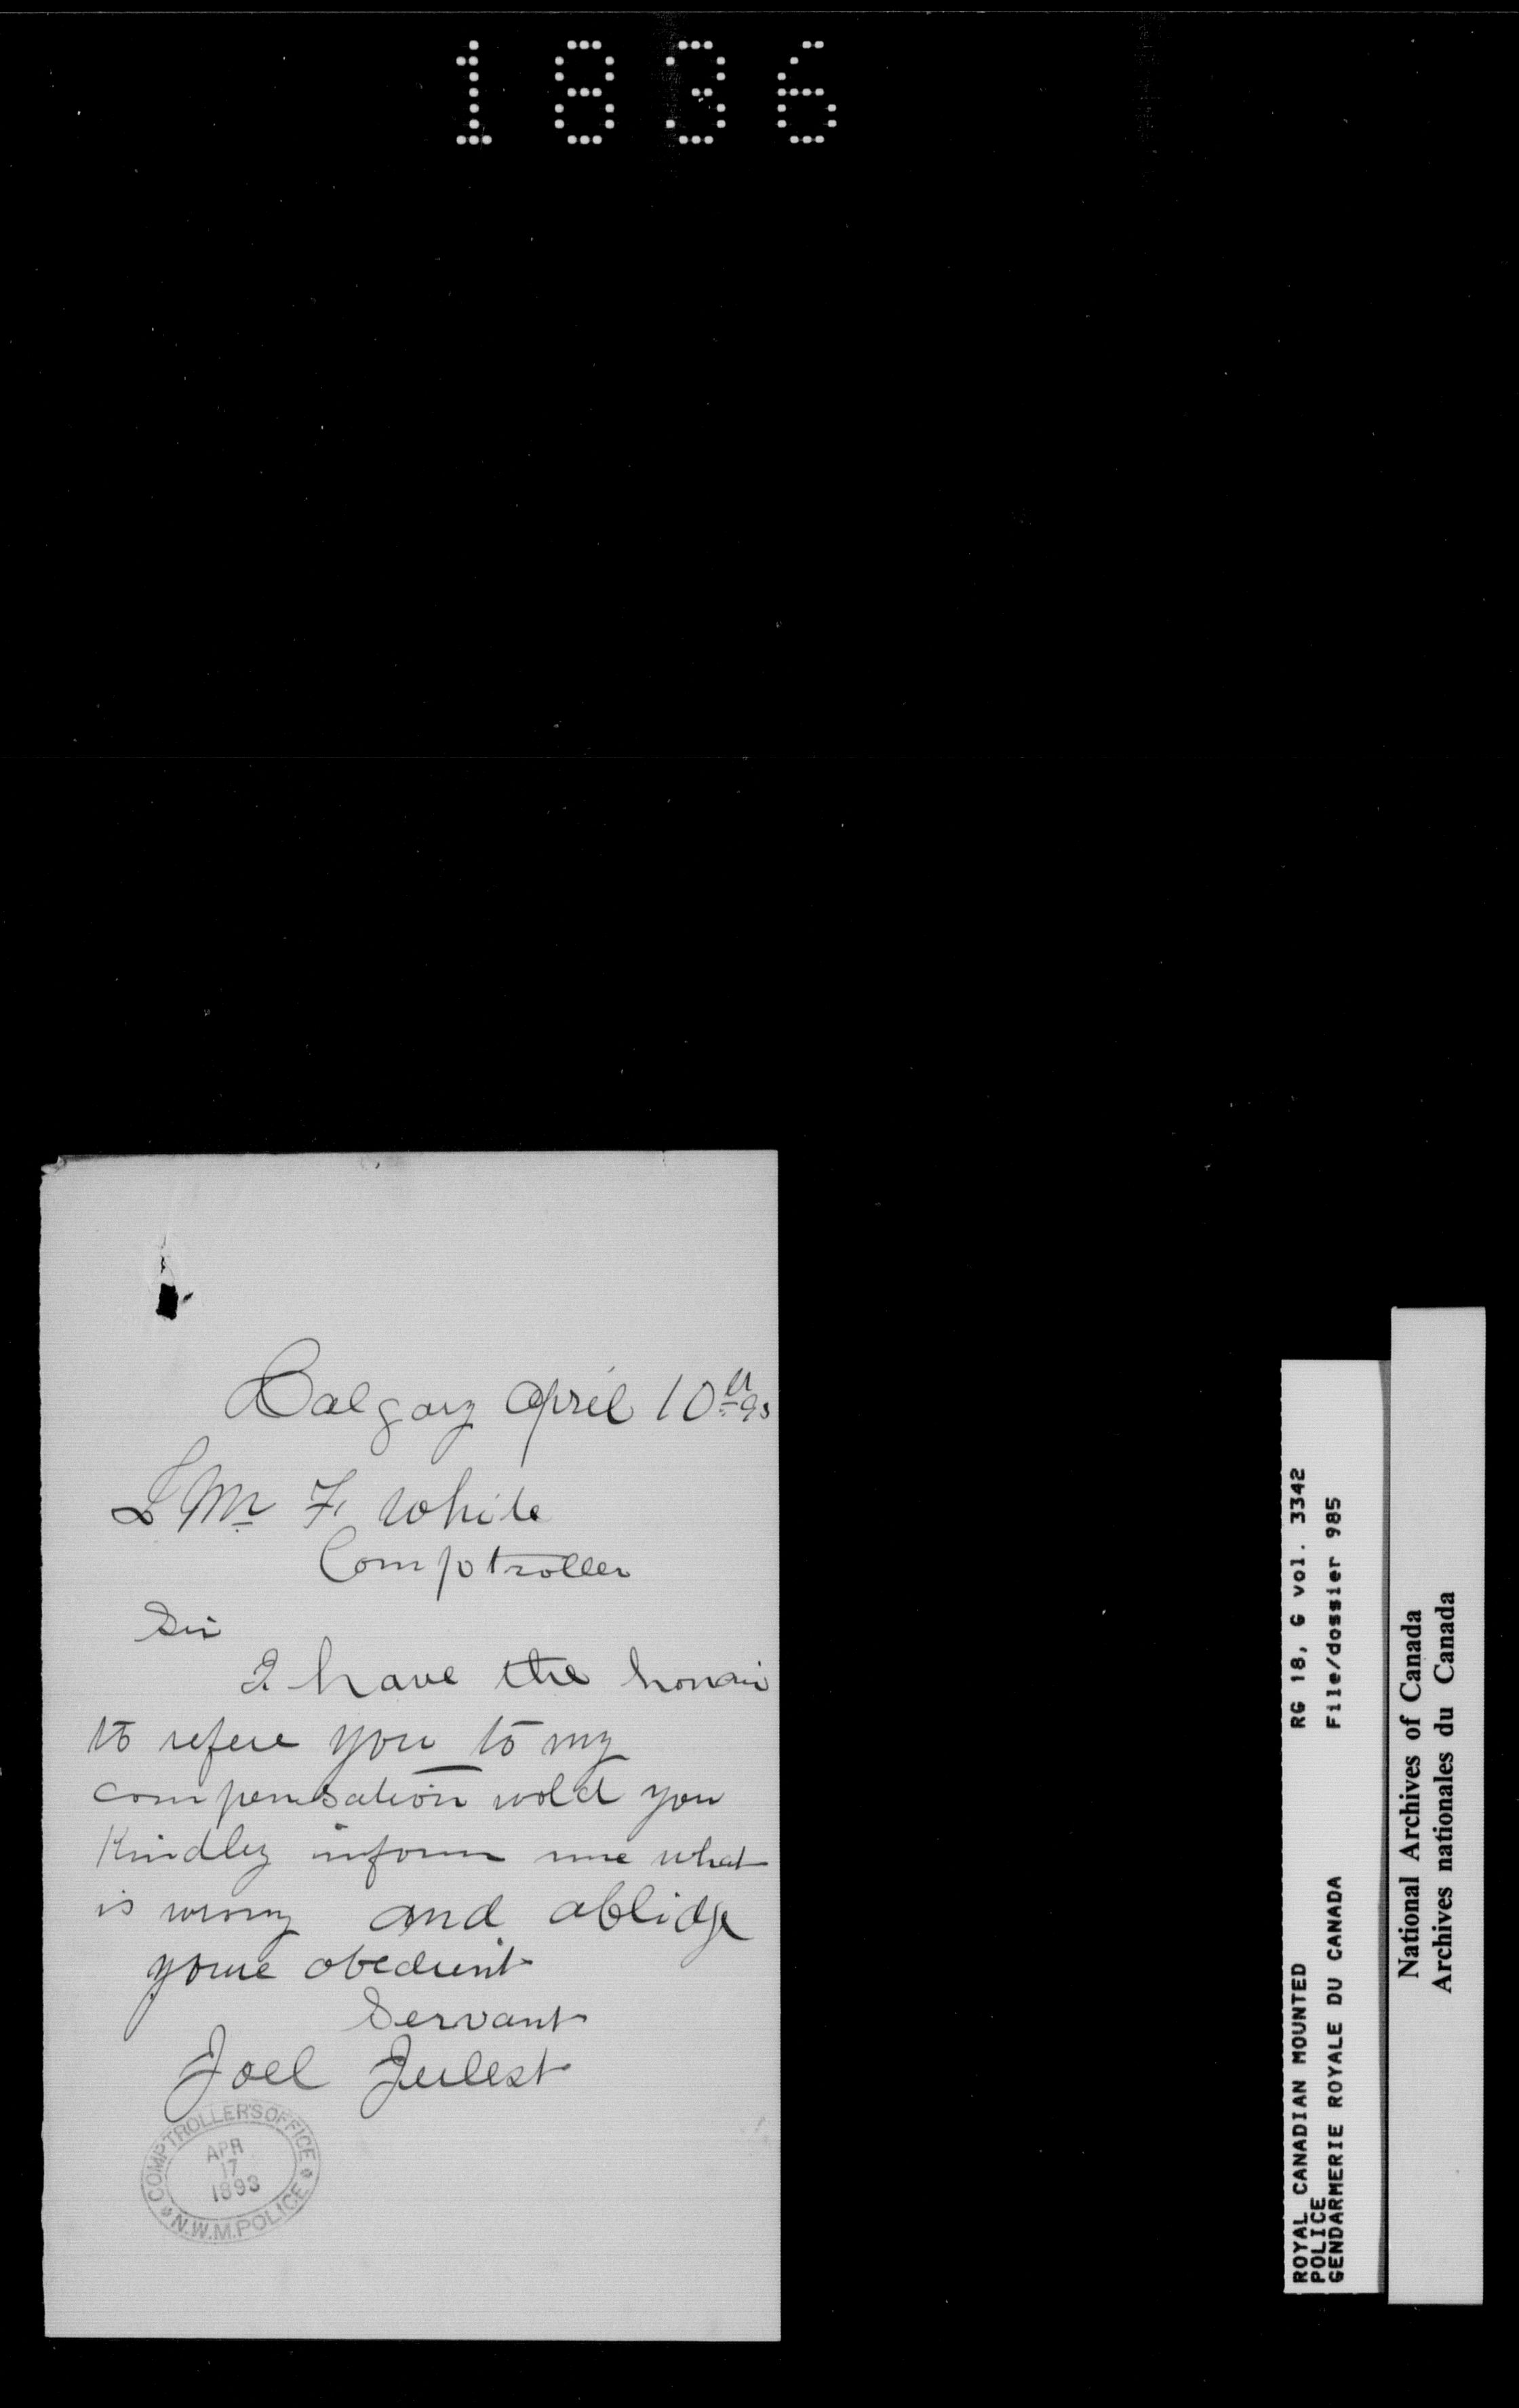 1836
Calgary April 10th 93
Mr F. White
Comptroller
Sir
I have the honour
to refere you to my
compensation wold you
Kindley inform me what
is wrong and oblidge
youre obedient
Servant
Joel
COMPTROLLER'S OFFICE
APR
17
1893
N.W.M.POLICE
ROYAL CANADIAN MOUNTED RG 18, G vol. 3342
POLICE File/dossier 985
GENDARMERIE ROYALE DU CANADA
National Archives of Canada
Archives nationales du Canada